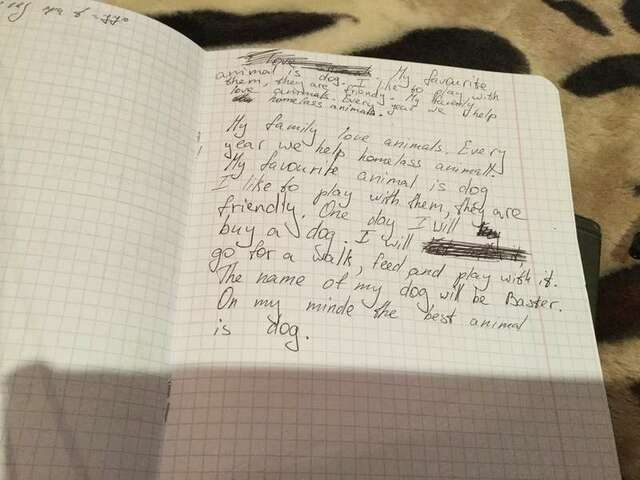 My favourite
animal is dog. I like to play with
them, they are friendly. My family
love animals. Every year we help
homelass animals.
My family love animals. Every
year we help homelass animals.
My favourite animal is dog
I like to play with them, they are
friendly. One day I will
buy a dog. I will
go for a walk, feed and play with it.
The name of my dog will be Baster.
On my minde the best animal
is dog.